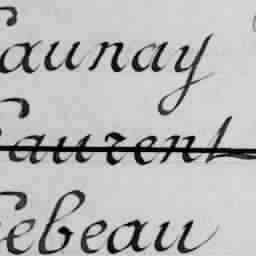 Launay
Laurent
Lebeau